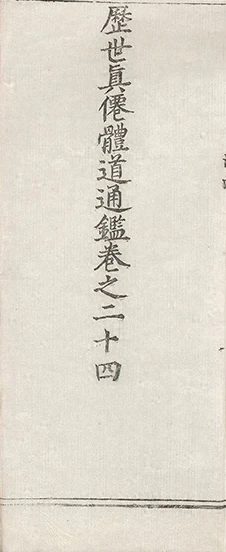 歷世真僊體道通鑑卷之二十四